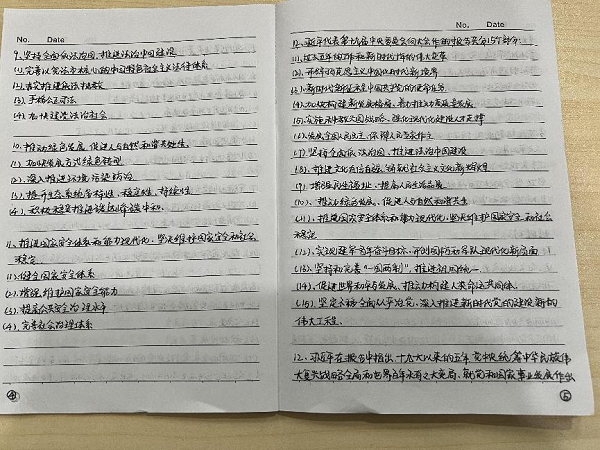 No. Date
9、坚持全面依法治国，推进法治中国建设
(1)、完善以宪法为核心的中国特色社会主义法律体系
(2)、扎实推进依法行政
(3)、严格公正司法
(4)、加快建设法治社会
10、推动绿色发展，促进人与自然和谐共生。
(1)、加快发展方式绿色转型
(2)、深入推进环境污染防治
(3)、提升生态系统多样性、稳定性、持续性
(4)、积极稳妥推进碳达峰碳中和.
11、推进国家安全体系和能力现代化，坚决维护国家安全和社会
稳定
(1)、健全国家安全体系
(2)、增强维护国家安全能力
(3)、提高公共安全治理水平
(4)、完善社会治理体系
④
No. Date
代表第十九届中央委员会向大会作的报告共分15个部分:
(1)、过去五年的工作和新时代十年的伟大变革
(2)、开辟马克思主义中国化时代化新境界
(3)、新时代新征程中国共产党的使命任务
(4)、加快构建新发展格局，着力推动高质量发展
(5)、实施科教兴国战略，强化现代化建设人才支撑
(6)、发展全过程人民民主，保障人民当家作主
(7)、坚持全面依法治国，推进法治中国建设
(8)、推进文化自信自强，铸就社会主义文化新辉煌
(9)、增进民生福祉，提高人民生活品质
(10)、推动绿色发展，促进人与自然和谐共生
(11)、推进国家安全体系和能力现代化，坚决维护国家安全和社会
稳定
(12)、实现建军百年奋斗目标，开创国防和军队现代化新局面
(13)、坚持和完善"一国两制"，推进祖国统一
(14)、促进世界和平与发展，推动构建人类命运共同体
(15)、坚定不移全面从严治党，深入推进新时代党的建设新的
伟大工程.
12、习近平在报告中指出 十九大以来的五年 党中央统筹中华民族伟
大复兴战略全局和世界百年未有之大变局，就党和国家事业发展作出
⑤